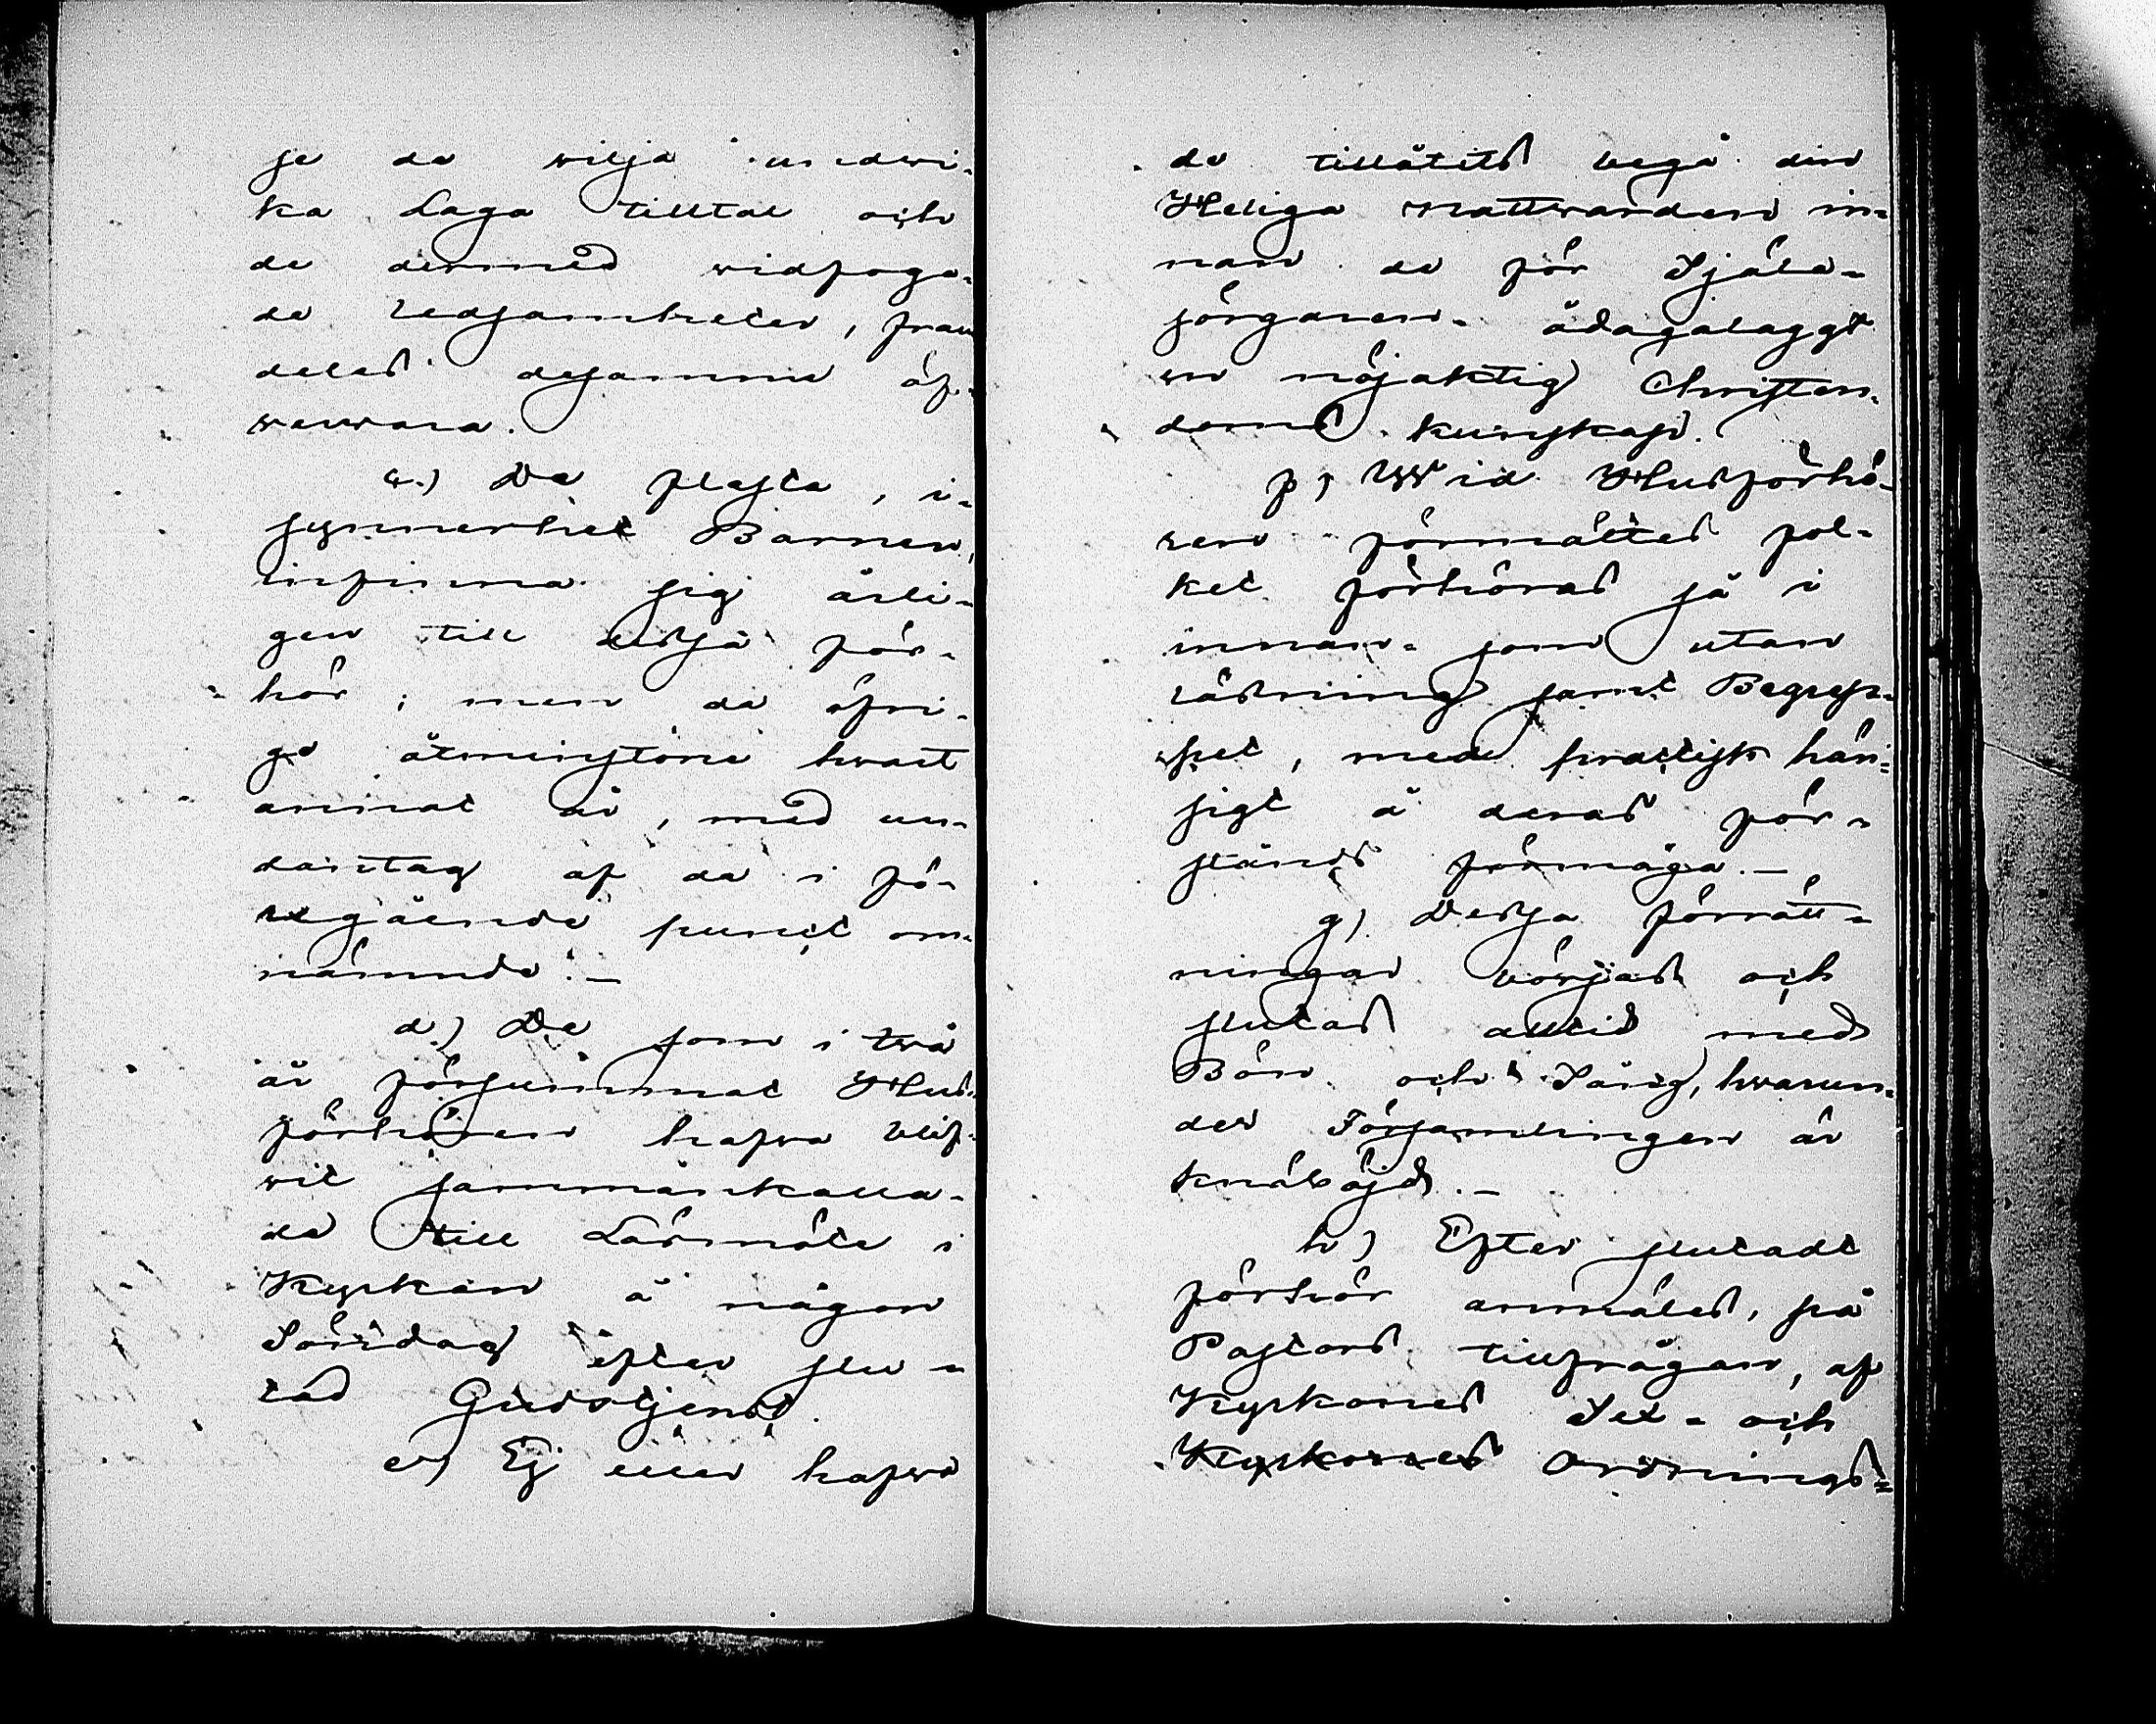 se de wilja undwi-
ka Laga tilltal och
de dermed widfoga-
de ledsamheter, fram
deles desamme öf-
werwara.
c.) De flesta, i-
synnerhet Barnen,
infinna sig årli-
gen till dessa för-
hör; men de öfri-
ge åtminstone hvart
annat år, med un-
dantag af de i fö-
regående punct om-
nämnde.-
d.) De som i twå
år försummat Hus-
förhören hafwa blif-
wit sammankalla-
de till Lärmöte i
Kyrkan å någon
Söndag efter slu-
tad Gudstjenst.
e) Ej eller hafwa
de tillåtits begå den
Heliga Nattwarden in-
nan de för Själa-
sörgaren ådagalaggt
en nöjaktig Christen-
doms kunskap.
f) Wid Husförhö-
ren förmältes fol-
ket förhöras så i
innan- som utan
läsning samt Begrep-
pet, med practisk hän-
sigt å deras för-
stånds förmåga.-
g) Dessa förrätt-
ningar börjas och
slutas alltid med
Bön och Sång, hwarun-
der Församlingen är
knäböjd.-
h) Efter slutadt
förhör anmäles, på
Pastors tillfrågan, af
Kyrkones Sex- och
Kyrkones Ordnings-